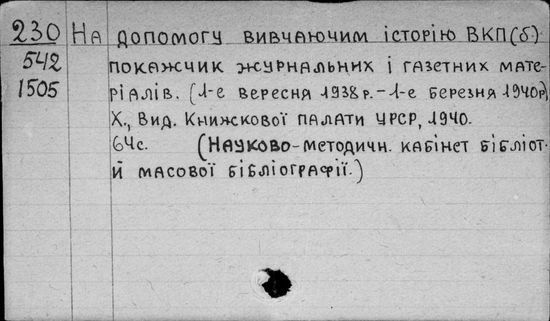 230 На допомогу вивчаючим історію ВКП(б).
542 покажчик журнальних і газетних мате-
1505 ріалів. (1-е вересня 1938 р. - 1-е березня 1940р)
Х., Вид. Книжскової палати УРСР, 1940.
64с. (Науково-методичн. кабінет бібліот.
й масової бібліографії.)